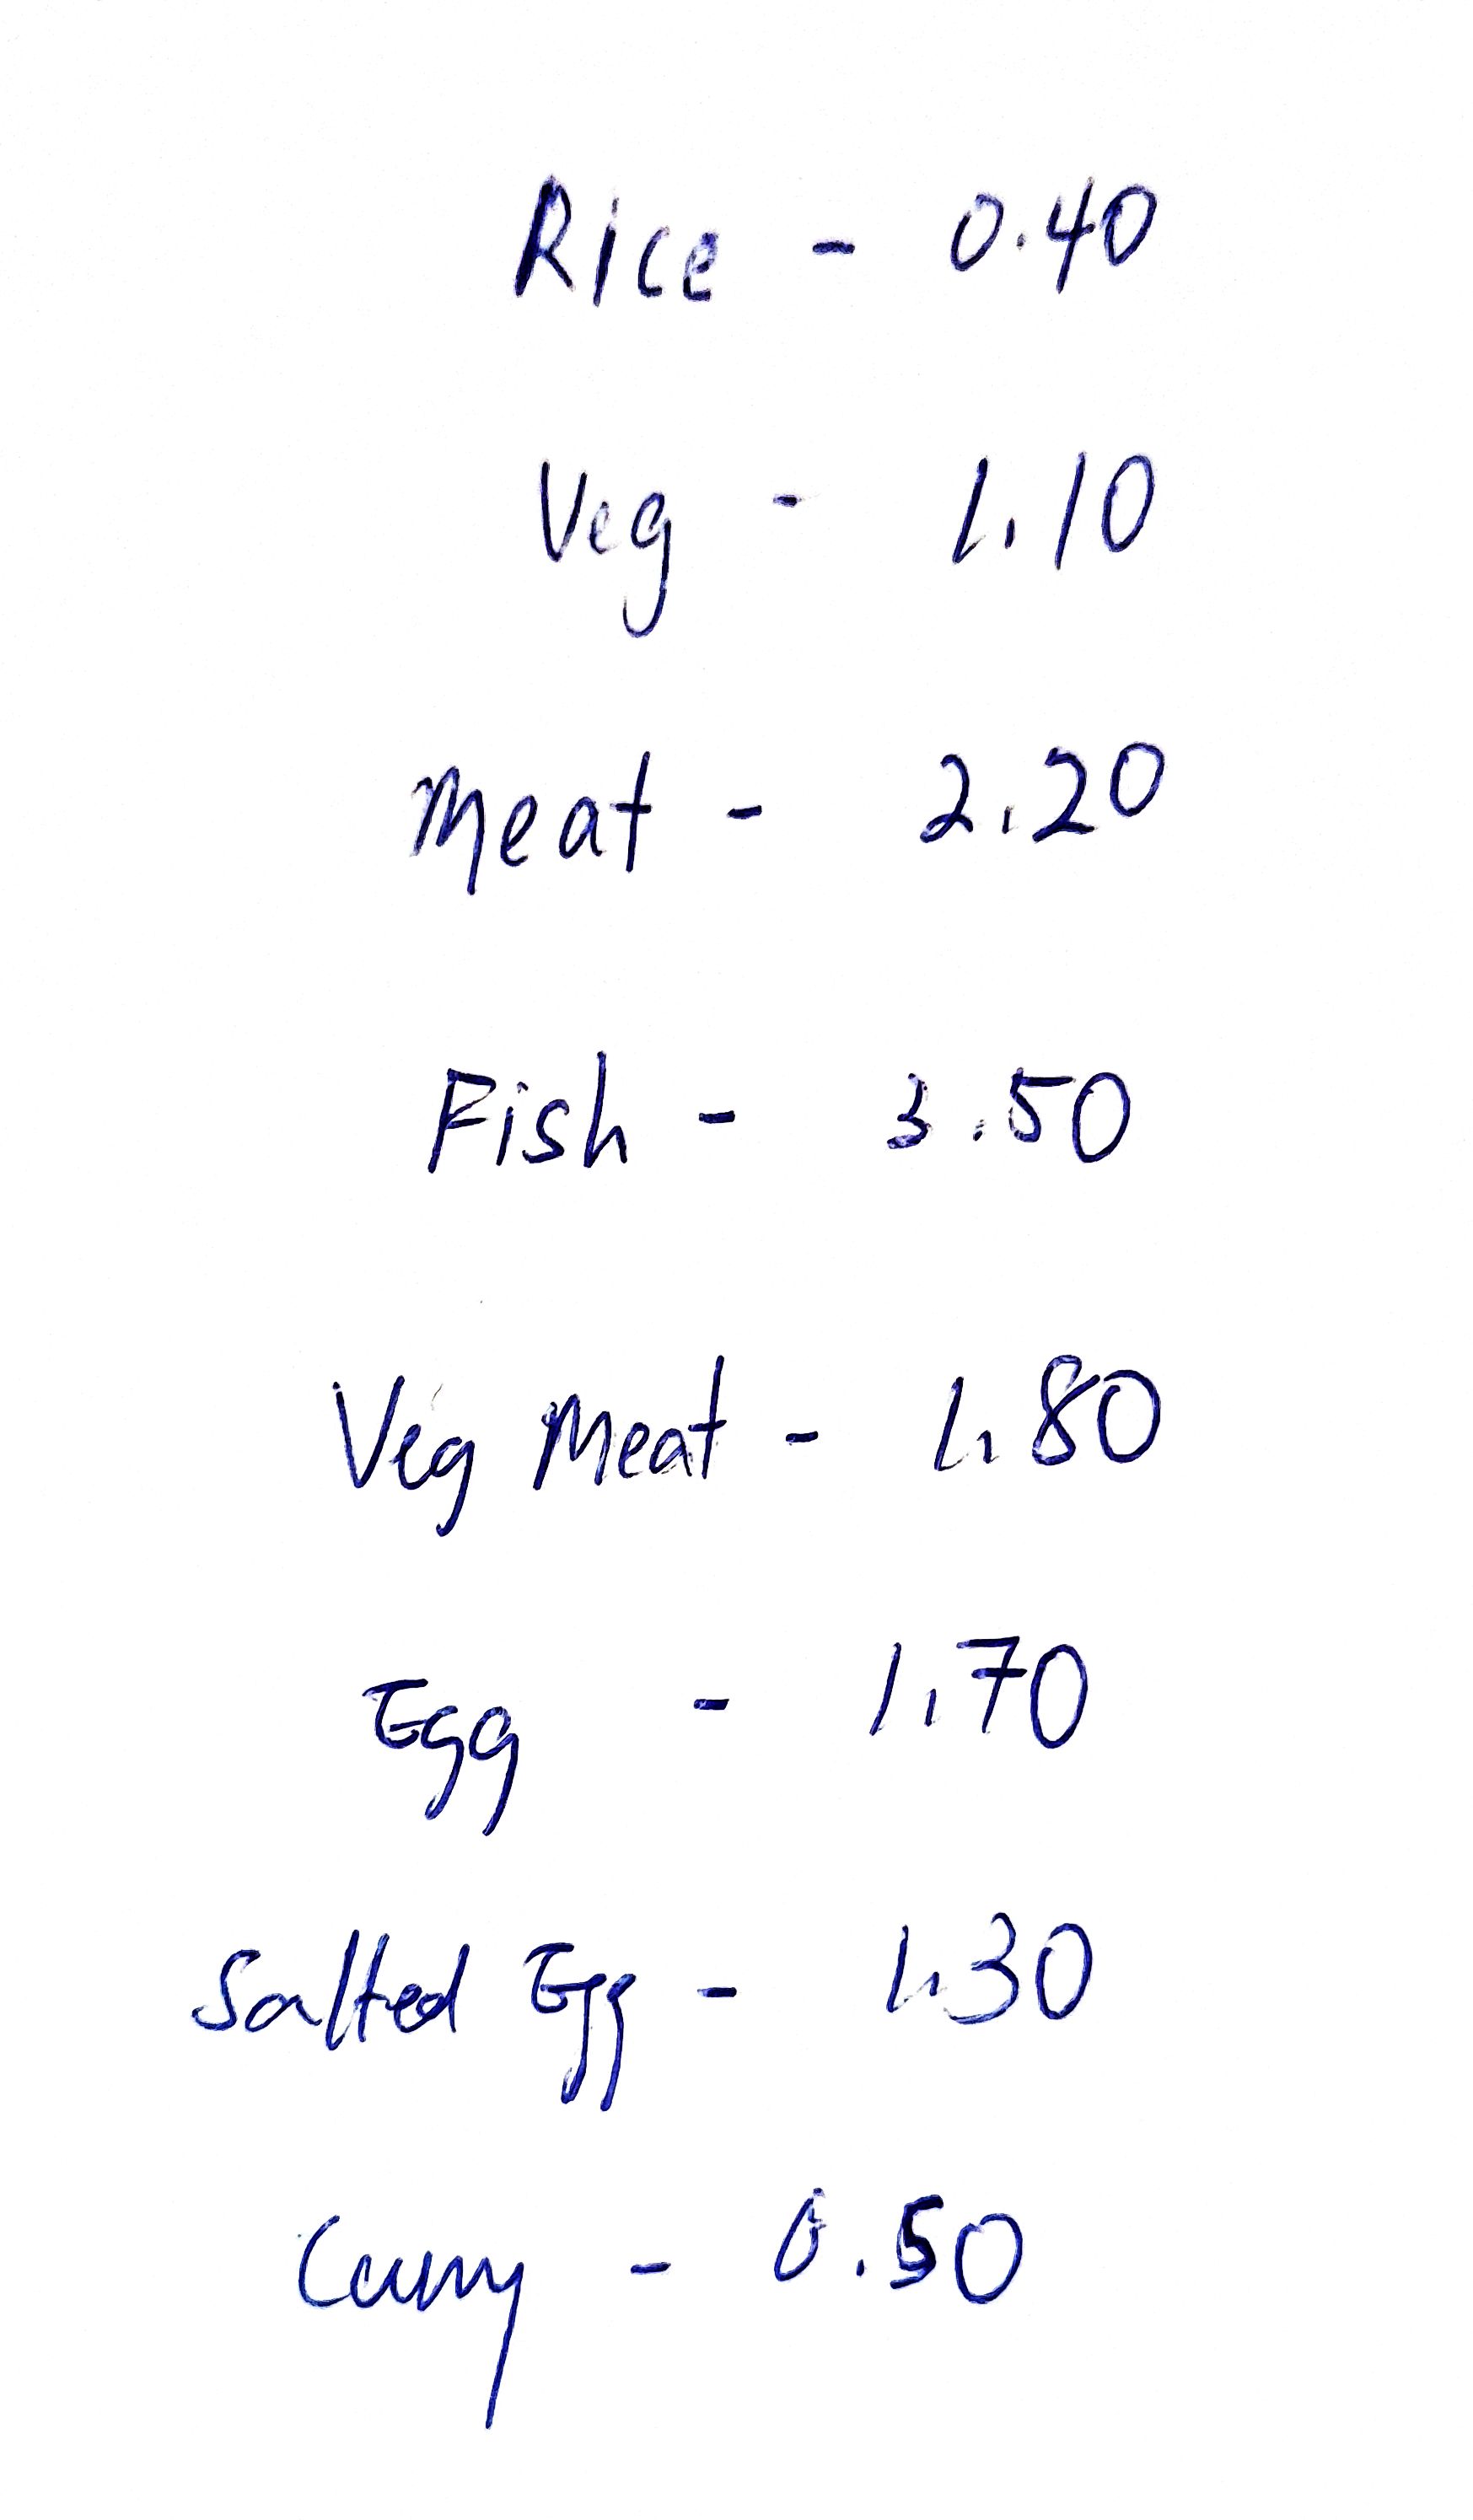 Rice - 0.40
Veg - 1.10
Meat - 2.20
Fish - 3.50
Veg Meat - 1.80
Egg - 1.70
Salted Egg - 1.30
Curry - 0.50